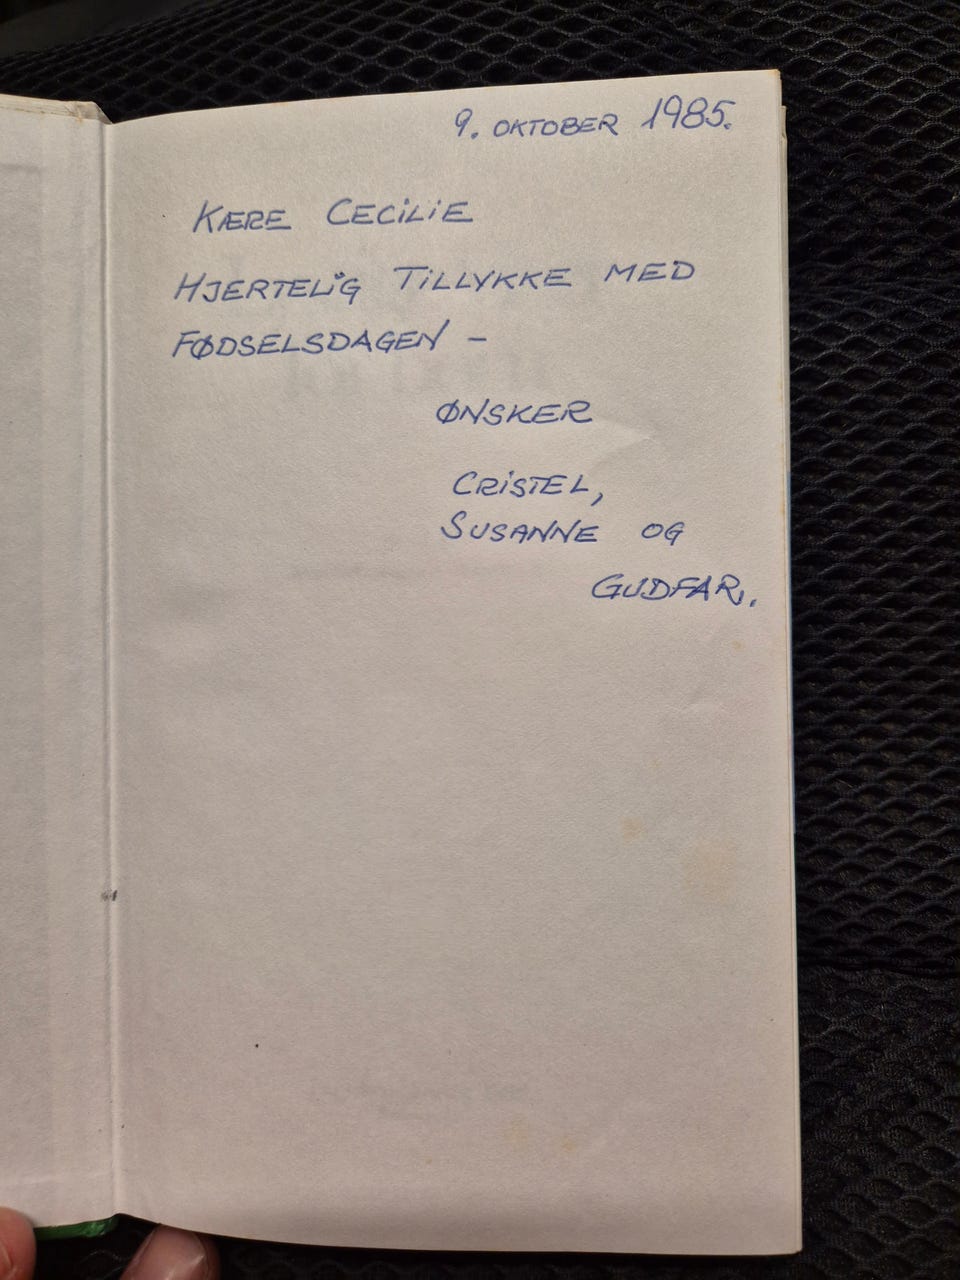 9. OKTOBER 1985.
KÆRE CECILIE
HJERTELIG TILLYKKE MED
FØDSELSDAGEN –
ØNSKER
CRISTEL,
SUSANNE OG
GUDFAR.